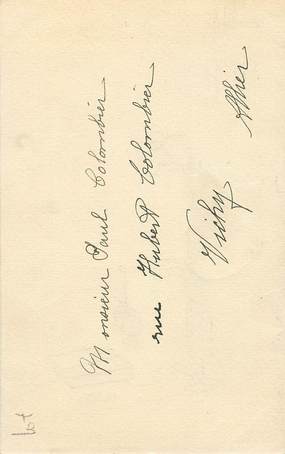 Monsieur Paul Colombier
rue Hubert Colombier
Vichy
Allier